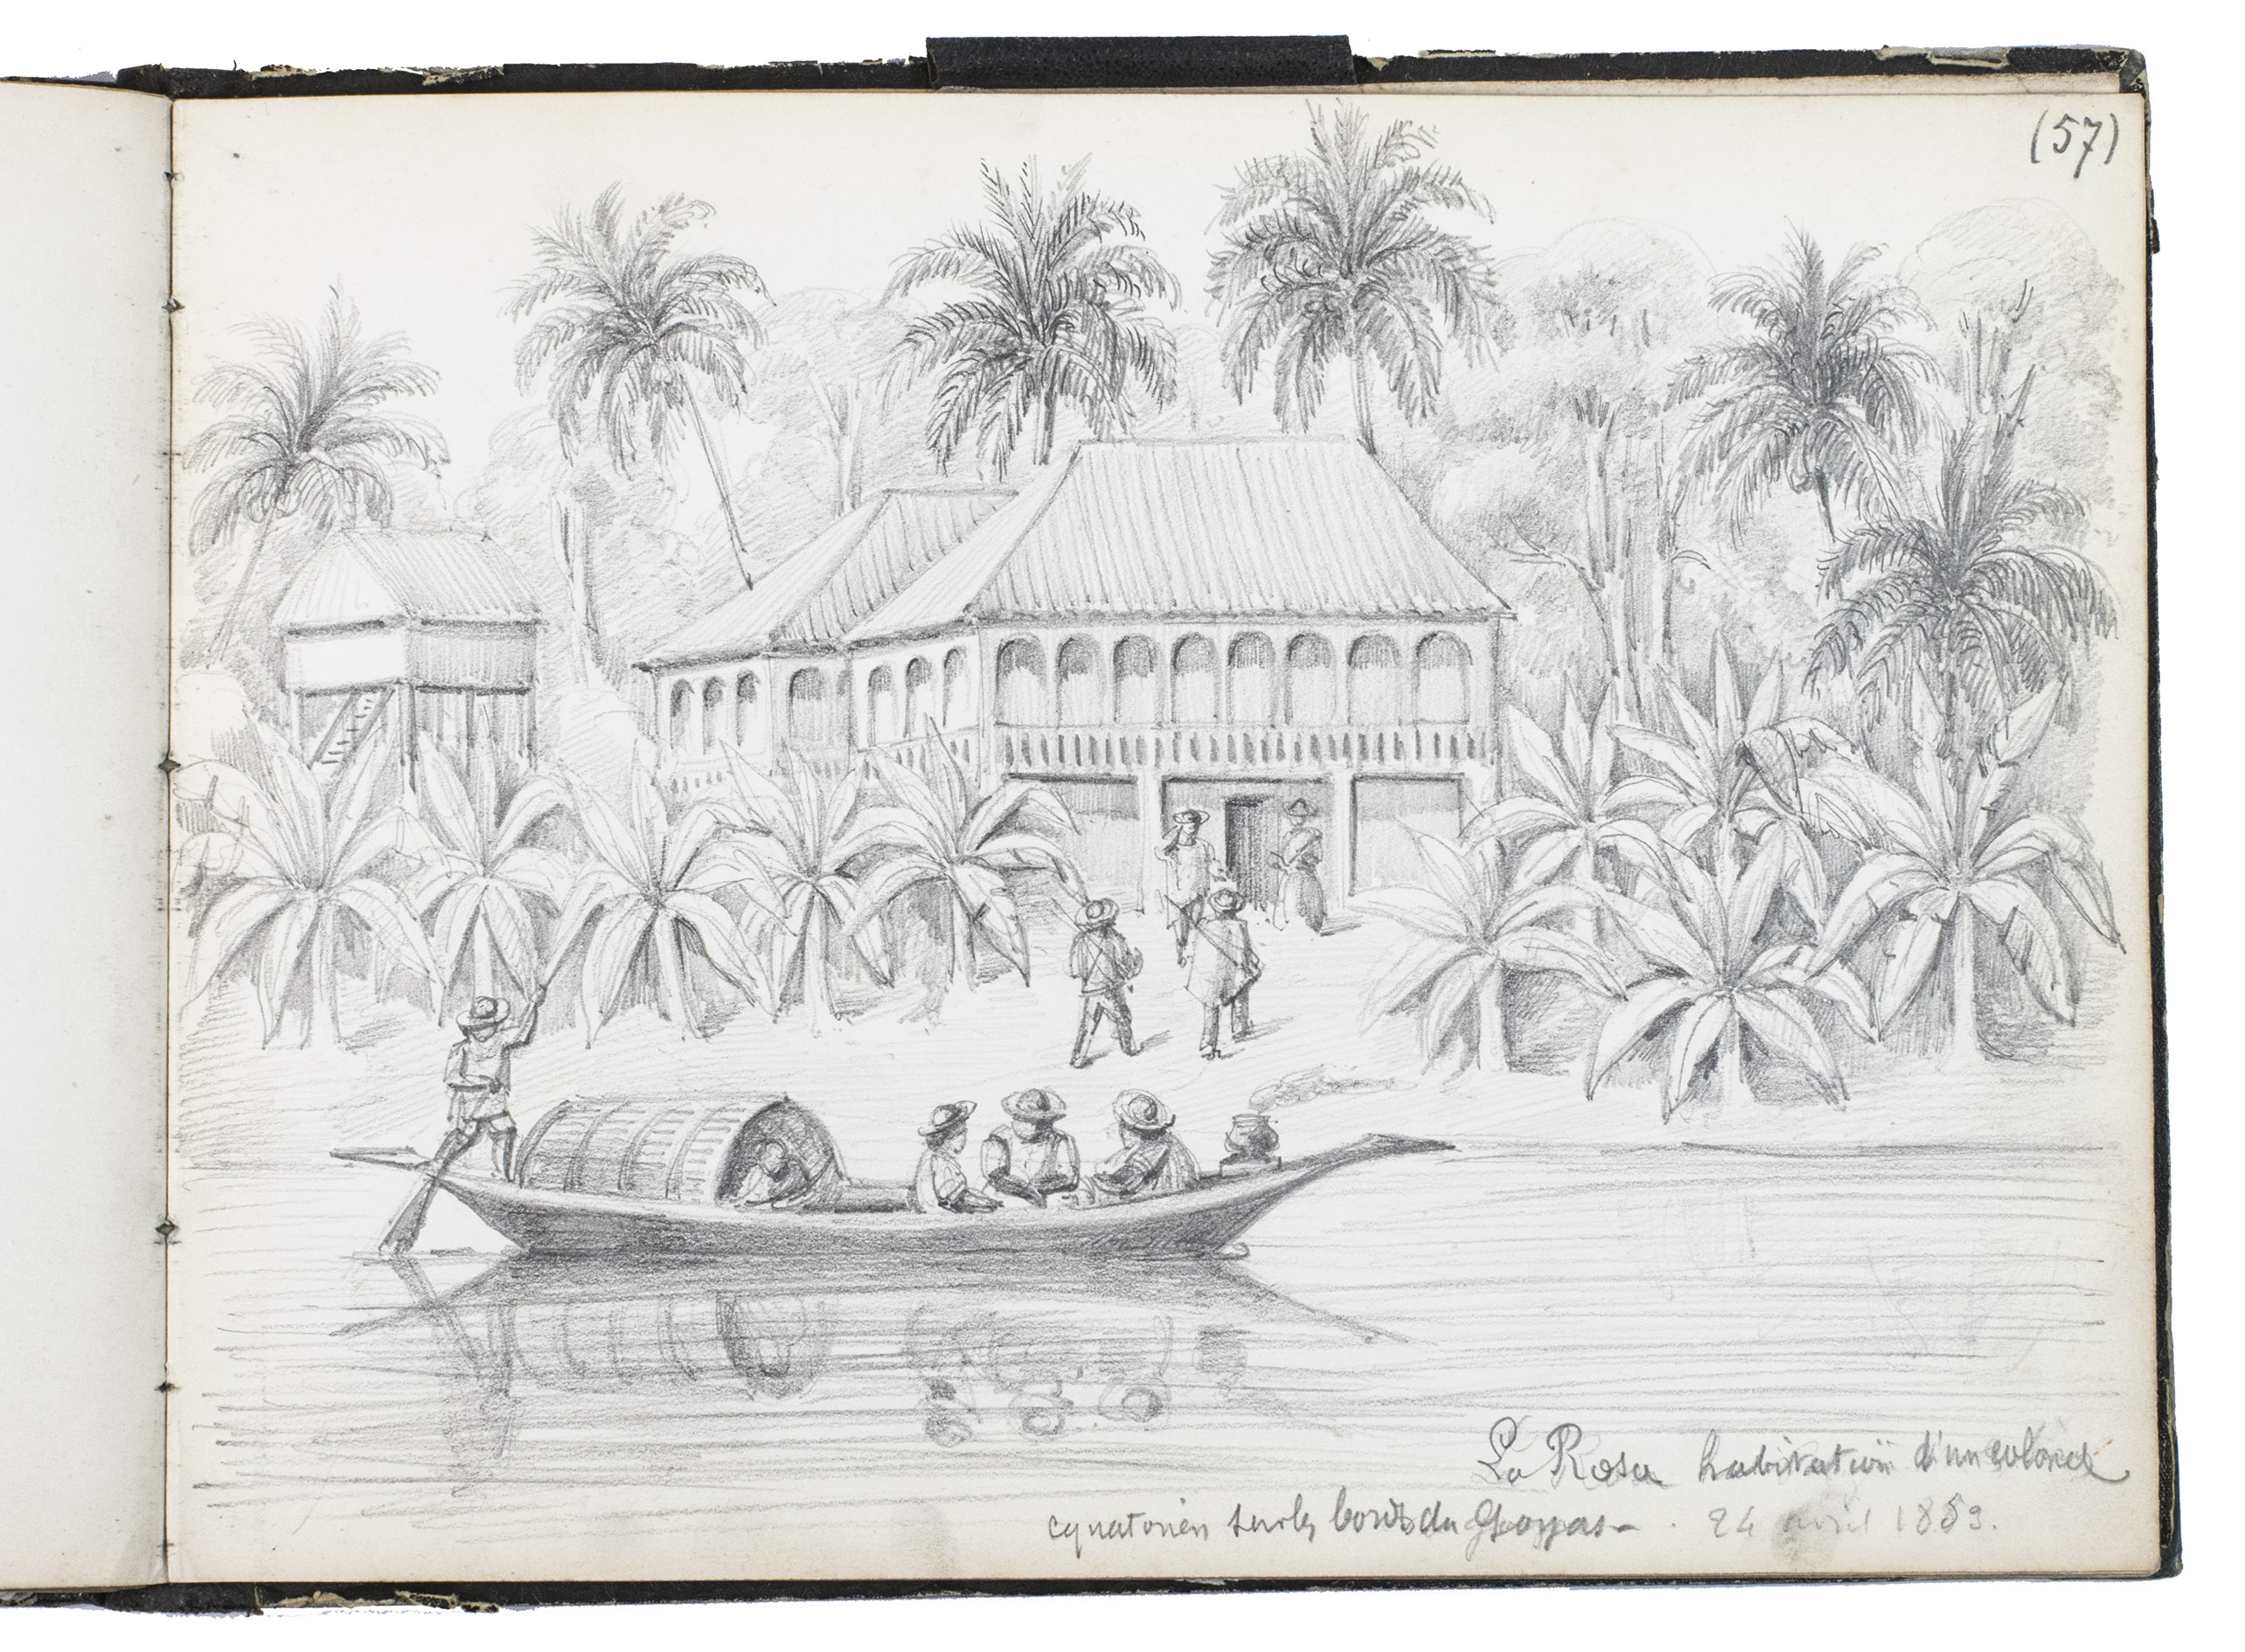 (57)
La Rosa habitation d'un colonel
equatorien sur les bords du Goyas - . 24 avril